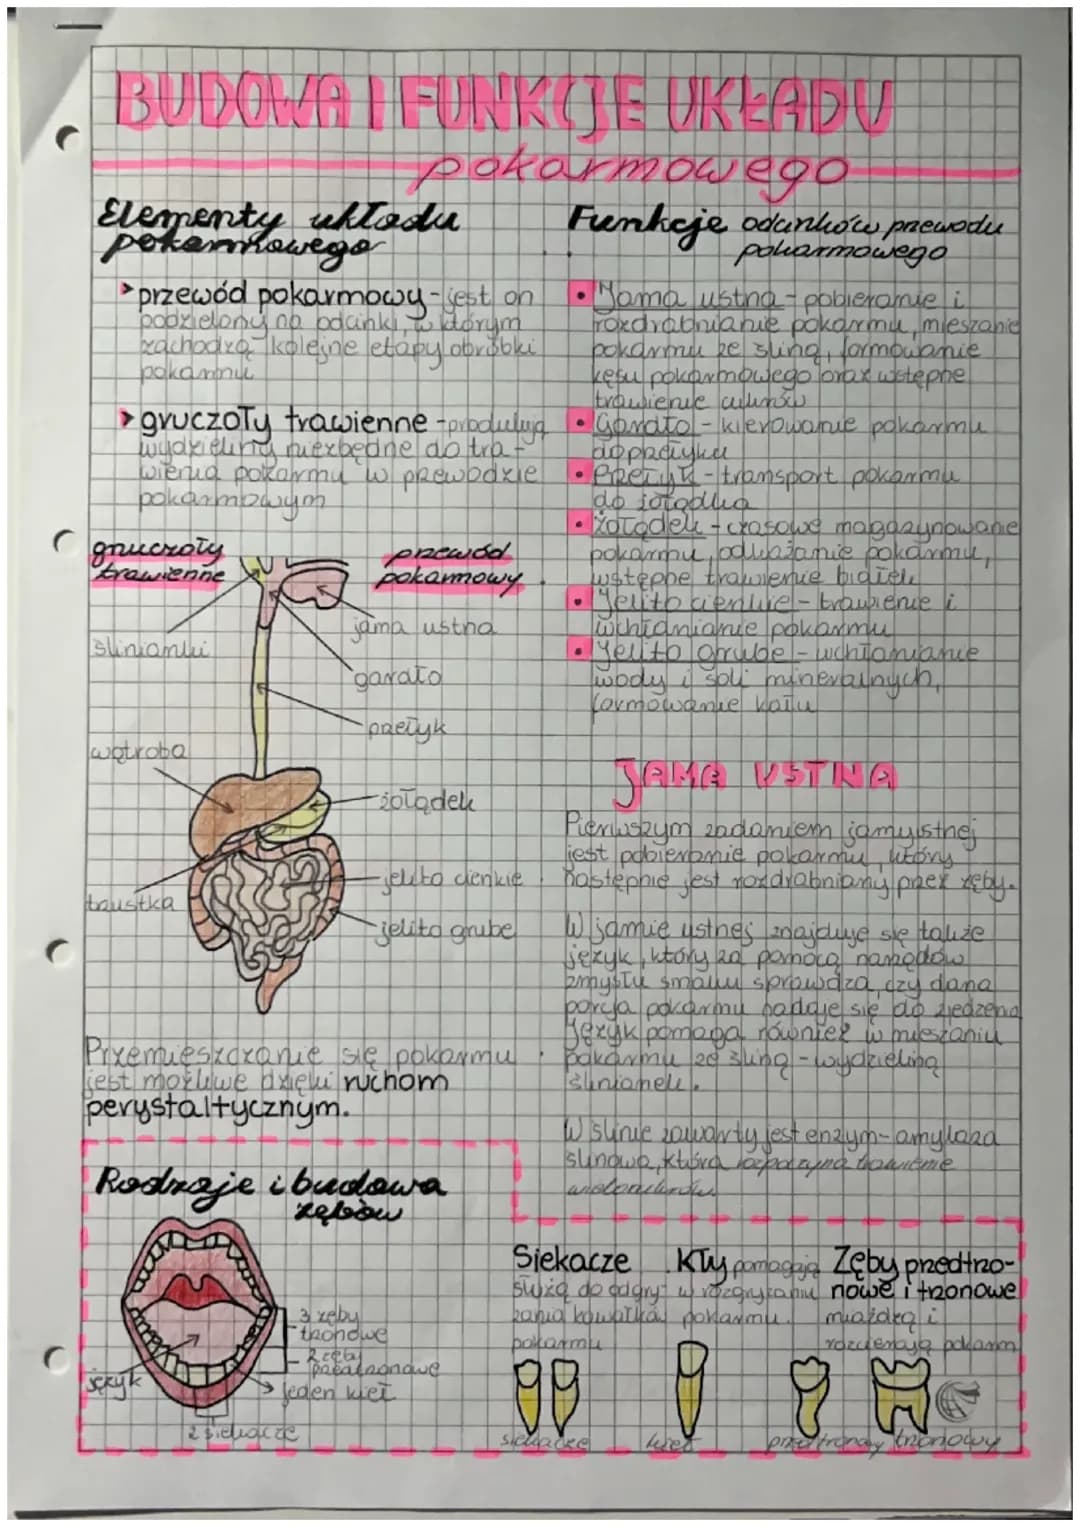 BUDOWA I FUNKCJE UKŁADU
pokarmowego
Elementy układu
pokarmowego
➤przewód pokarmowy - jest on
podzielony na odcinki, w którym
zachodzą kolejne etapy obróbki
pokarmu
➤gruczoły trawienne - produkują
wydzieliny niezbędne do tra-
wienia pokarmu w przewodzie
pokarmowym
gruczoły
trawienne
przewód
pokarmowy
jama ustna
ślinianki
gardło
przełyk
wątroba
żołądek
jelito cienkie
trzustka
jelito grube
Przemieszczanie się pokarmu
jest możliwe dzięki ruchom
perystaltycznym.
Funkcje odcinków przewodu
pokarmowego
• Jama ustna - pobieranie i
rozdrabnianie pokarmu, mieszanie
pokarmu ze śliną, formowanie
kęsu pokarmowego oraz wstępne
trawienie cukrów
• Gardło - kierowanie pokarmu
do przełyku
• Przełyk - transport pokarmu
do żołądka
• Żołądek - czasowe magazynowanie
pokarmu, odkażanie pokarmu,
wstępne trawienie białek
• Jelito cienkie - trawienie i
wchłanianie pokarmu
• Jelito grube - wchłanianie
wody i soli mineralnych,
formowanie kału
JAMA USTNA
Pierwszym zadaniem jamy ustnej
jest pobieranie pokarmu, który
następnie jest rozdrabniany przez zęby.
W jamie ustnej znajduje się także
język, który za pomocą narządów
zmysłu smaku sprawdza, czy dana
porcja pokarmu nadaje się do zjedzenia
Język pomaga również w mieszaniu
pokarmu ze śliną - wydzieliną
ślinianek.
W ślinie zawarty jest enzym - amylaza
ślinowa, która rozpoczyna trawienie
wielocukrów.
Rodzaje i budowa
zębów
3 zęby
trzonowe
2 zęby
przedtrzonowe
język
jeden kieł
2 siekacze
Siekacze
służą do odgry-
zania kawałka
pokarmu
Kły pomagają
w rozgryzaniu
pokarmu.
Zęby przedtrzo-
nowe i trzonowe
miażdżą i
rozcierają pokarm
siekacze
kieł
przedtrzonowy
trzonowy